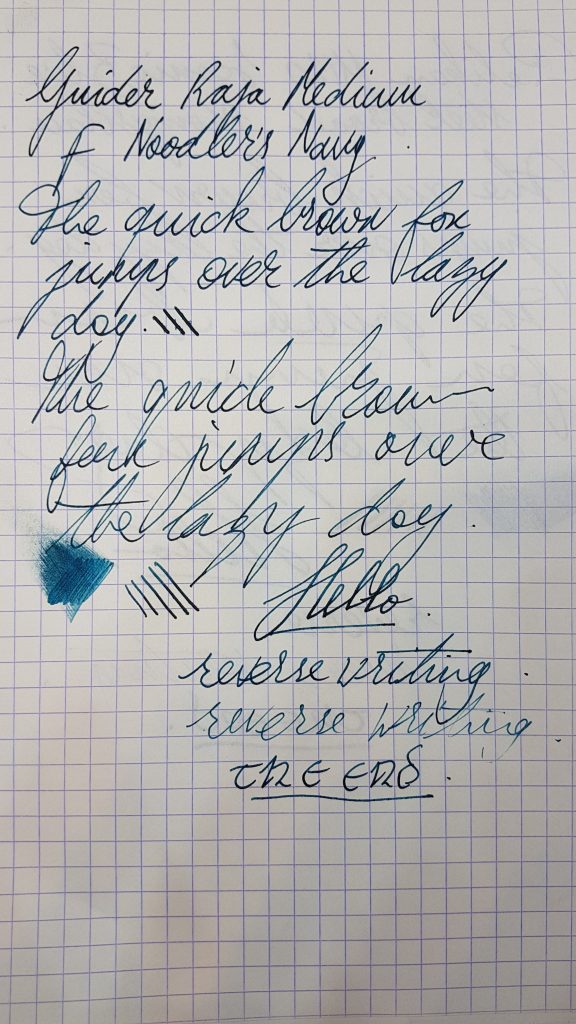 Guider Raja Medium
f Noodler's Navy.
The quick brown fox
jumps over the lazy
dog.
The quick brown
fox jumps over
the lazy dog.
Hello.
reverse writing.
reverse writing.
THE END.